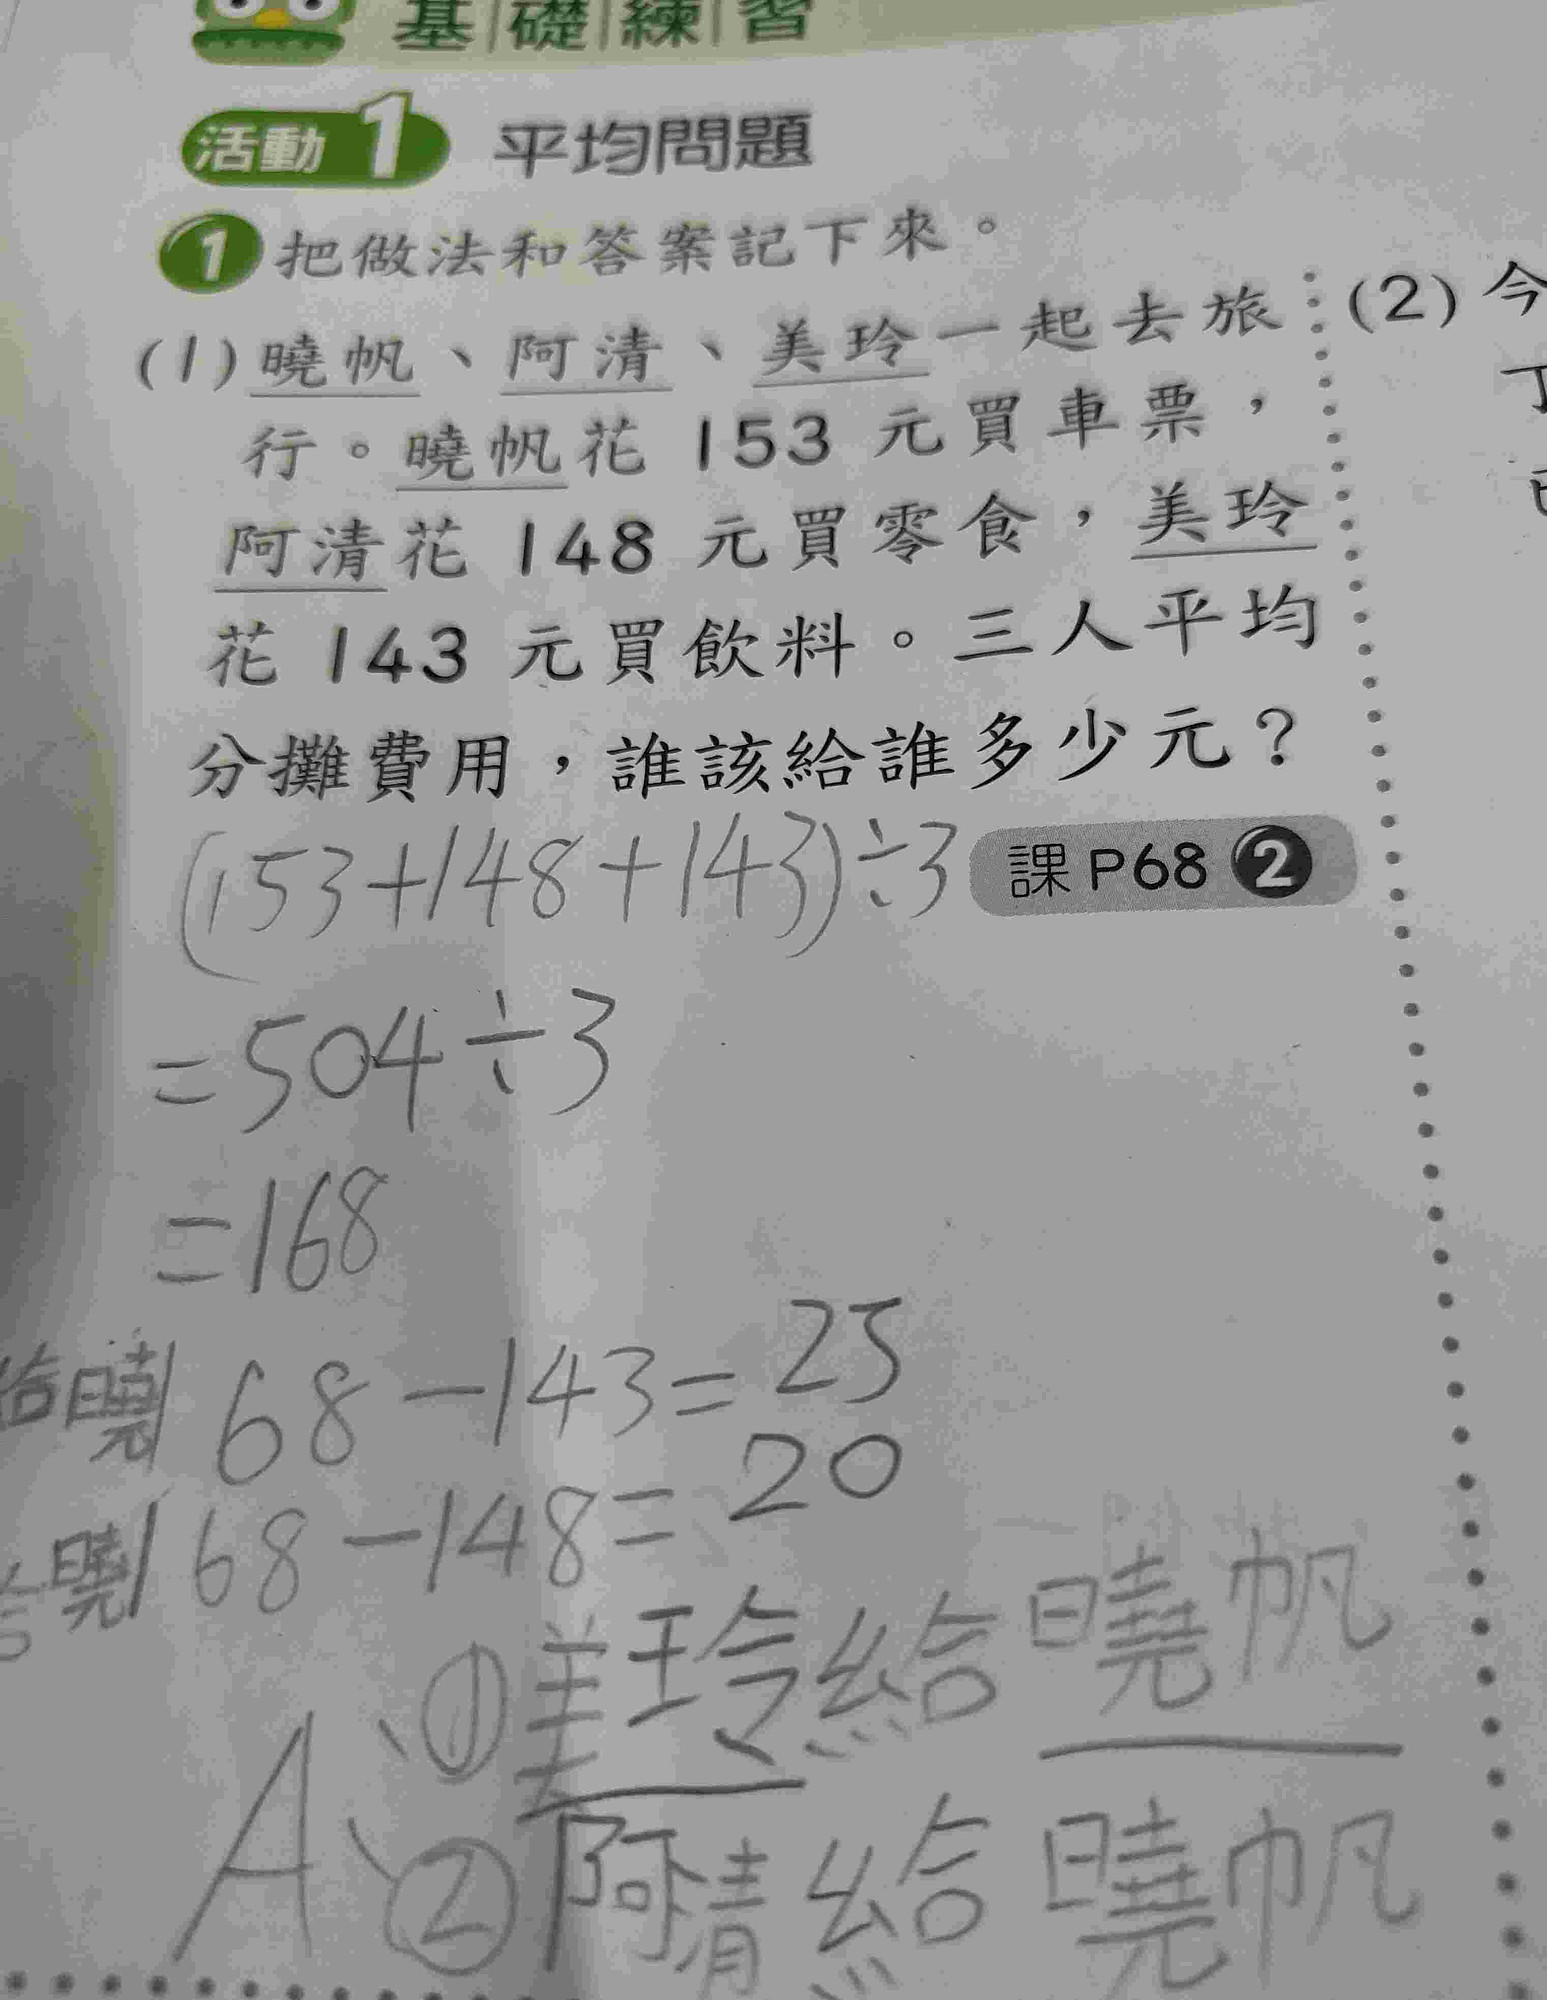 基礎練習
活動1 平均問題
1 把做法和答案記下來。
(1)曉帆、阿清、美玲一起去旅
行。曉帆花 153 元買車票，
阿清花 148 元買零食，美玲
花 143 元買飲料。三人平均
分攤費用，誰該給誰多少元？
(153+148+143)÷3
課P68 2
=504÷3
=168
給曉168-143=25
給曉168-148=20
A、①美玲給曉帆
、②阿清給曉帆
(2)今